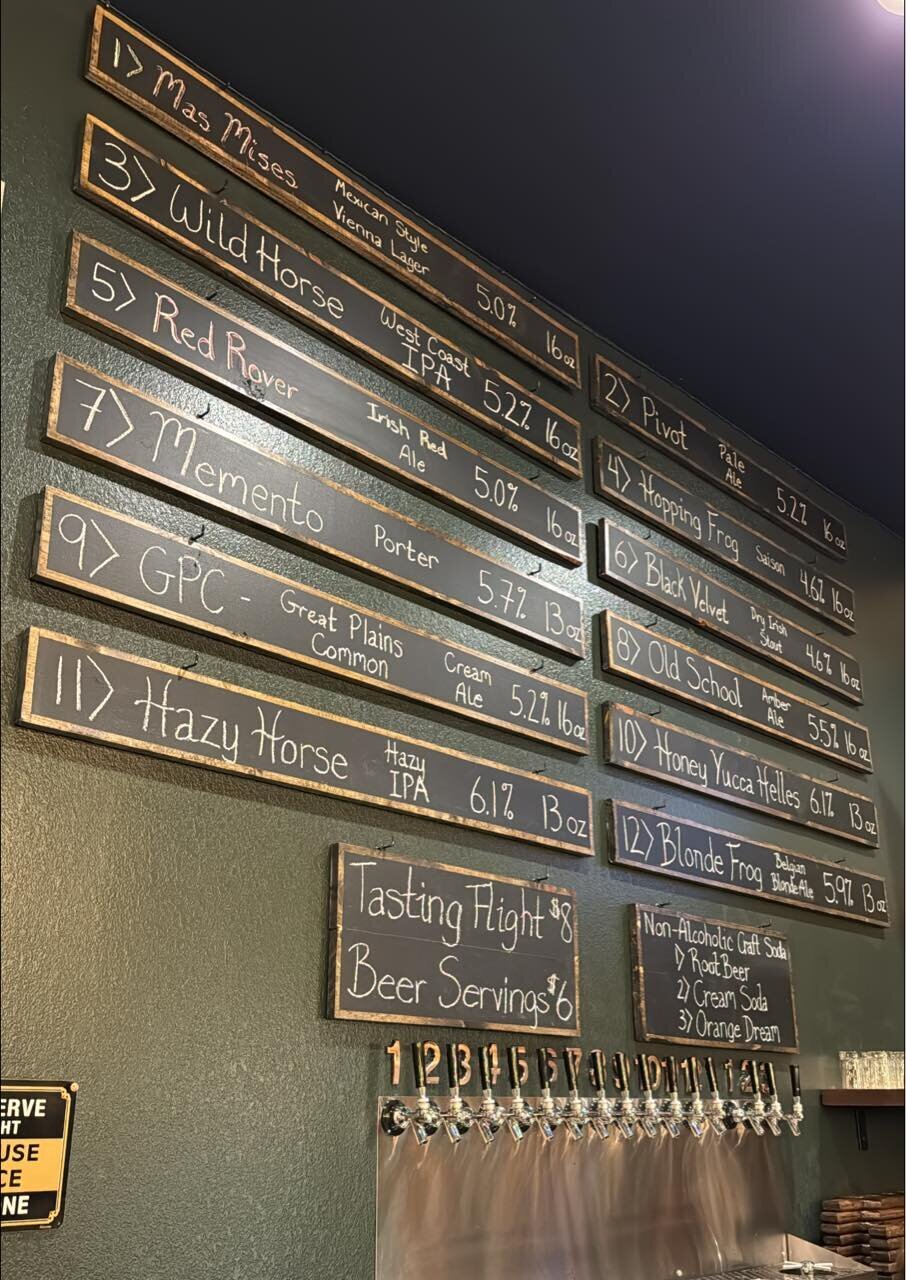 1> Mas Mises Mexican Style
Vienna Lager 5.0% 16 oz
3> Wild Horse West Coast
IPA 5.2% 16 oz
5> Red Rover Irish Red
Ale 5.0% 16 oz
7> Memento Porter 5.7% 13 oz
9> GPC - Great Plains
Common Cream
Ale 5.2% 16 oz
11> Hazy Horse Hazy
IPA 6.1% 13 oz
2> Pivot Pale
Ale 5.2% 16 oz
4> Hopping Frog Saison 4.6% 16 oz
6> Black Velvet Dry Irish
Stout 4.6% 16 oz
8> Old School Amber
Ale 5.5% 16 oz
10> Honey Yucca Helles 6.1% 13 oz
12> Blonde Frog Belgian
Blonde Ale 5.9% 13 oz
Tasting Flight $8
Beer Servings $6
Non-Alcoholic Craft Soda
1> Root Beer
2> Cream Soda
3> Orange Dream
1 2 3 4 5 6 7 8 9 10 11 12
ERVE
HT
USE
CE
NE